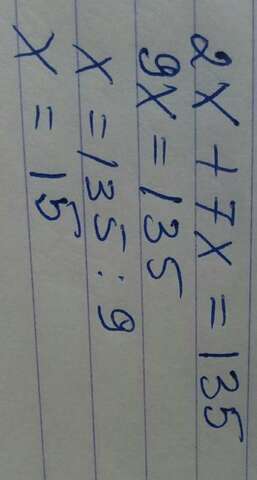 2x + 7x = 135
9x = 135
x = 135 : 9
x = 15